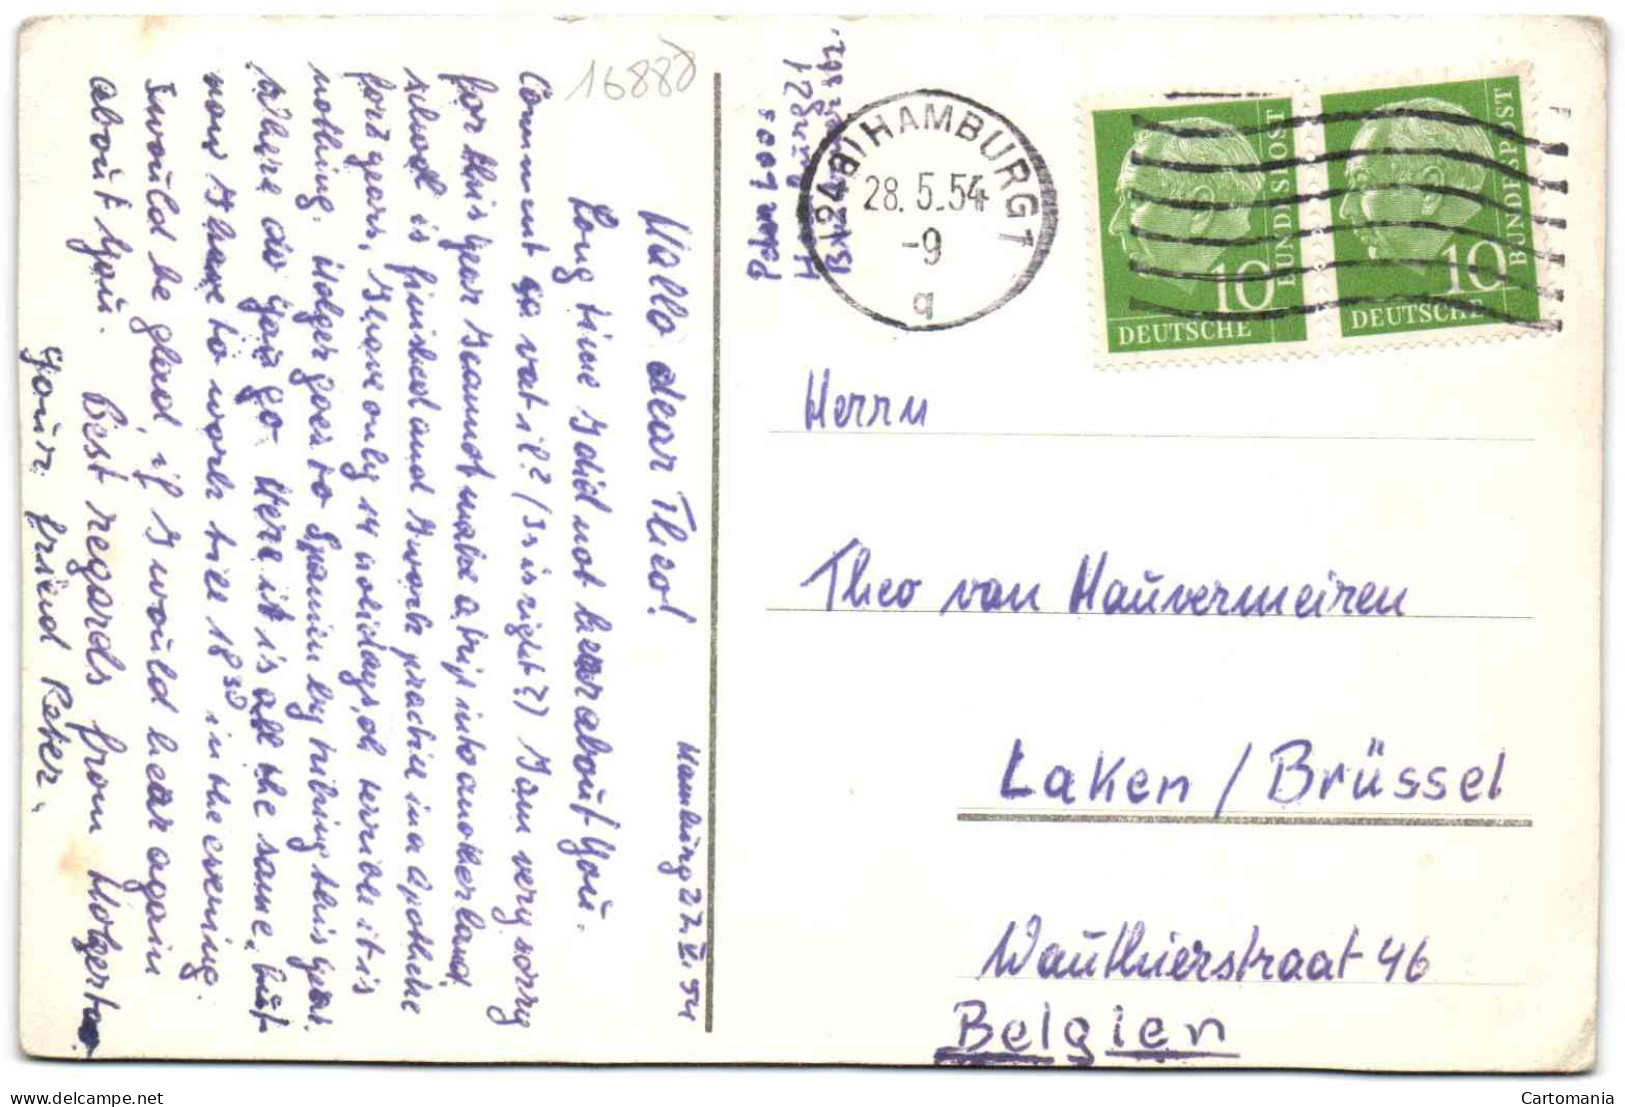 16888
Hamburg 27. V. 54
Hallo dear Theo!
Long time I did not hear about You.
Comment ça va t il? (Is is right?) I am very sorry
for this year I cannot make a trip into another land,
school is finished and I work practic in a apotheke
for 2 years, I have only 14 holidays, oh terrible it is
nothing. Holger goes to Spanin by this year.
Where do You go. Here it is all the same, but
now I have to work till 18³⁰ in the evening.
I would be glad, if I would hear again
about You.
Best regards from Holger too
Your friend Peter.
Peter Loos
Hamburg 21
(24a) HAMBURG 1
28.5.54
-9
q
10
DEUTSCHE
BUNDESPOST
10
DEUTSCHE
BUNDESPOST
Herrn
Theo van Hauvermeiren
Laken / Brüssel
Wauthierstraat 46
Belgien
Cartomania